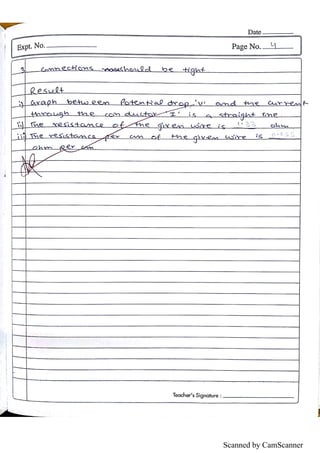 Date
Expt. No.
Page No. 4
3 Connections should be tight
Result
i) Graph between Potential drop 'V' and the current
through the conductor 'I' is a straight line
ii) The resistance of the given wire is ohm
iii) The resistance per cm of the given wire is
ohm per cm
Teacher's Signature :
Scanned by CamScanner